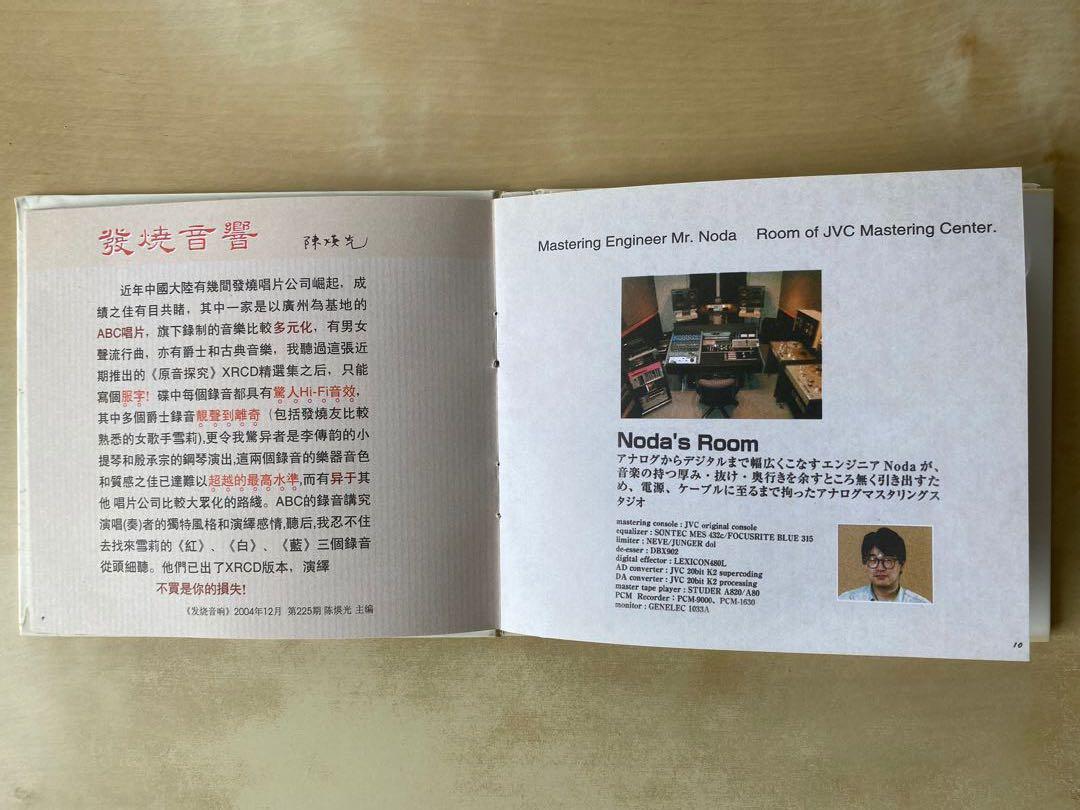 發燒音響 陳煐光
近年中國大陸有幾間發燒唱片公司崛起，成
績之佳有目共睹，其中一家是以廣州為基地的
ABC唱片，旗下錄制的音樂比較多元化，有男女
聲流行曲，亦有爵士和古典音樂，我聽過這張近
期推出的《原音探究》XRCD精選集之后，只能
寫個服字！碟中每個錄音都具有驚人Hi-Fi音效，
其中多個爵士錄音靚聲到離奇（包括發燒友比較
熟悉的女歌手雪莉）,更令我驚异者是李傳韵的小
提琴和殷承宗的鋼琴演出,這兩個錄音的樂器音色
和質感之佳已達難以超越的最高水準,而有异于其
他 唱片公司比較大眾化的路綫。ABC的錄音講究
演唱(奏)者的獨特風格和演繹感情,聽后,我忍不住
去找來雪莉的《紅》、《白》、《藍》三個錄音
從頭細聽。他們已出了XRCD版本，演繹
不買是你的損失！
《发烧音响》2004年12月 第225期 陈煐光 主编
Mastering Engineer Mr. Noda Room of JVC Mastering Center.
Noda's Room
アナログからデジタルまで幅広くこなすエンジニア Noda が、
音楽の持つ厚み・抜け・奥行きを余すところ無く引き出すた
め、電源、ケーブルに至るまで拘ったアナログマスタリングス
タジオ
mastering console : JVC original console
equalizer : SONTEC MES 432c/FOCUSRITE BLUE 315
limiter : NEVE/JUNGER dol
de-esser : DBX902
digital effector : LEXICON480L
AD converter : JVC 20bit K2 supercoding
DA converter : JVC 20bit K2 processing
master tape player : STUDER A820/A80
PCM Recorder : PCM-9000、PCM-1630
monitor : GENELEC 1033A
10